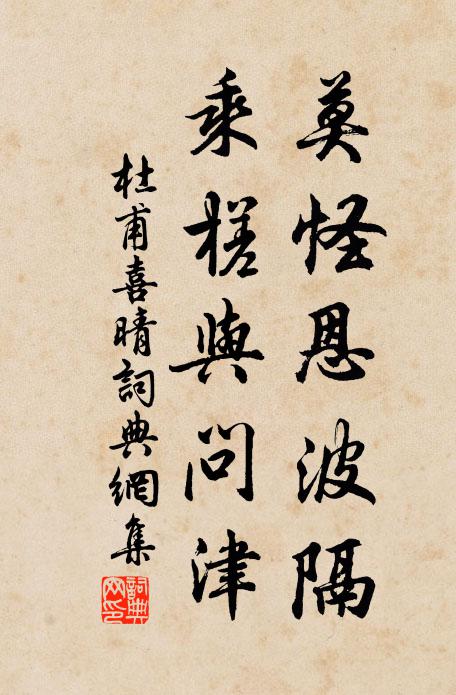 莫怪恩波隔
乘槎與問津
杜甫喜晴詞典網集
詞典
網印